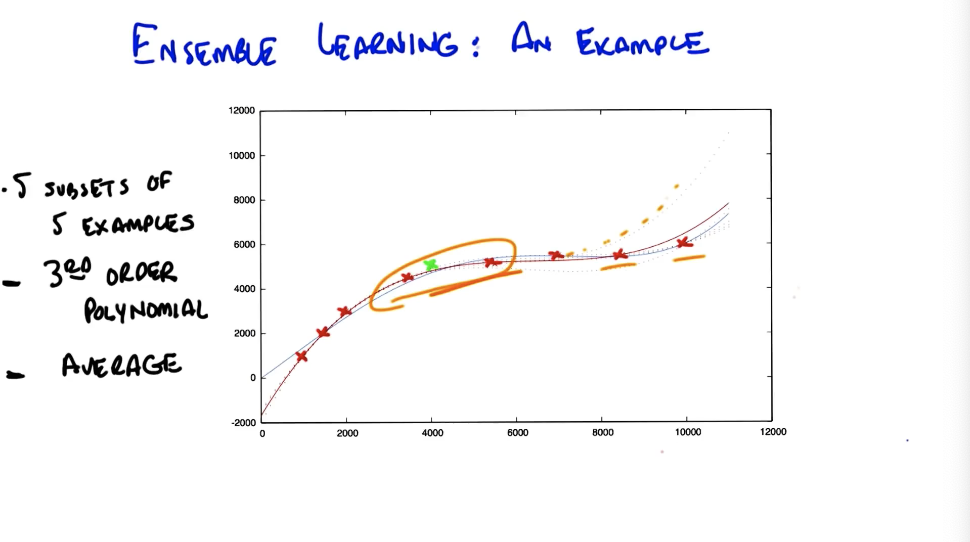 ENSEMBLE LEARNING: AN EXAMPLE
. 5 SUBSETS OF
5 EXAMPLES
- 3RD ORDER
POLYNOMIAL
- AVERAGE
12000
10000
8000
6000
4000
2000
0
-2000
0 2000 4000 6000 8000 10000 12000